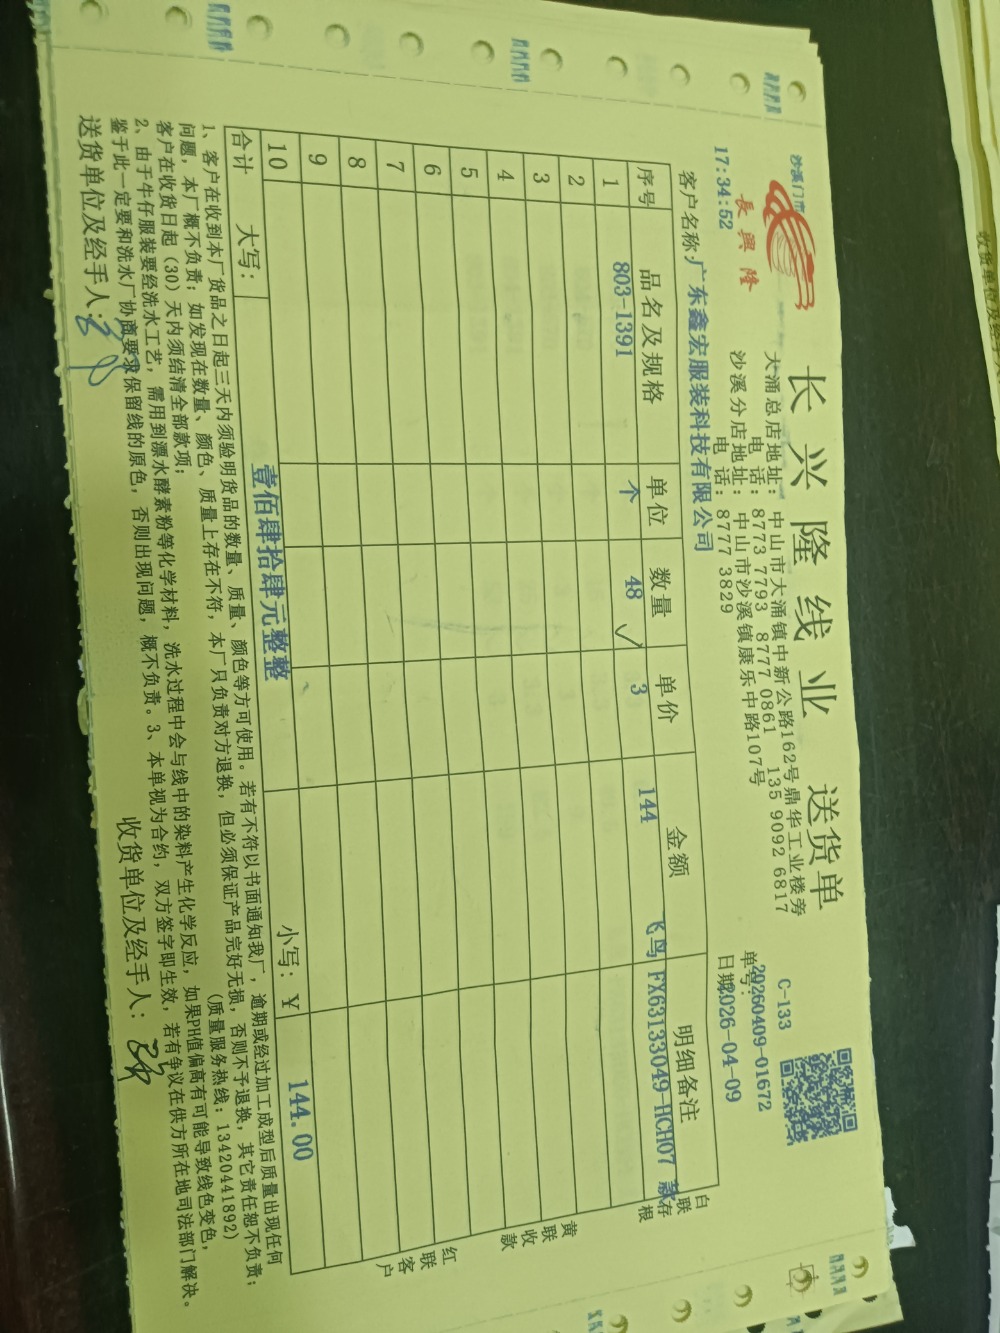 沙溪门市
長興隆
长兴隆线业 送货单
大涌总店地址：中山市大涌镇中新公路162号鼎华工业楼旁
电 话：8773 7793 8777 0861 135 9092 6817
沙溪分店地址：中山市沙溪镇康乐中路107号
电 话：8777 3829
C-133
单号：20260409-01672
17:34:52
日期：2026-04-09
客户名称：广东鑫宏服装科技有限公司
序号 品名及规格 单位 数量 单价 金额 明细备注
1 803-1391 个 48 ✓ 3 144 飞鸟 FX63133049-HCH07 款
2
3
4
5
6
7
8
9
10
合计 大写：壹佰肆拾肆元整整 小写：￥ 144.00
白联存根
黄联收款
红联客户
1、客户在收到本厂货品之日起三天内须验明货品的数量、质量、颜色等方可使用。若有不符以书面通知我厂，逾期或经过加工成型后质量出现任何
问题，本厂概不负责；如发现在数量、颜色、质量上存在不符，本厂只负责对方退换，但必须保证产品完好无损，否则不予退换，其它责任恕不负责；
客户在收货日起（30）天内须结清全部款项； (质量服务热线：13420441892)
2、由于牛仔服装要经洗水工艺，需用到漂水酵素粉等化学材料，洗水过程中会与线中的染料产生化学反应，如果PH值偏高有可能导致线色变色，
鉴于此一定要和洗水厂协商要求保留线的原色，否则出现问题，概不负责。3、本单视为合约，双方签字即生效，若有争议在供方所在地司法部门解决。
送货单位及经手人： 收货单位及经手人：